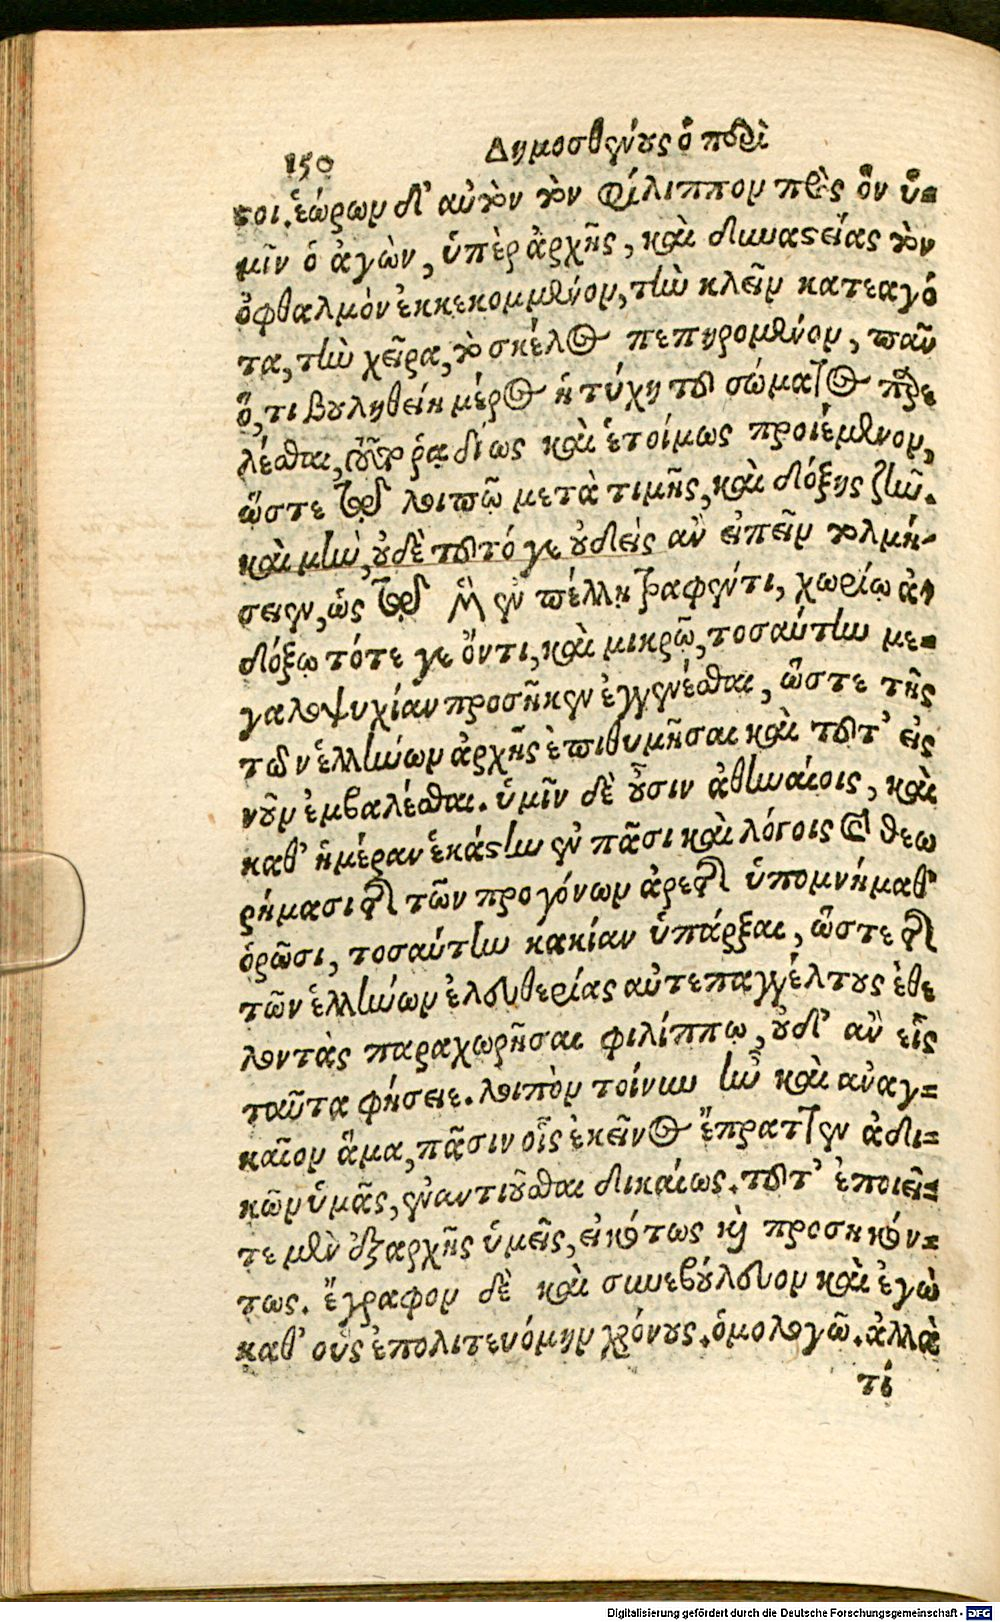 150 Δημοσθένους ὁ περὶ
τοι. ἑώρων δ' αὐτὸν τὸν Φίλιππον πρὸς ὃν ὑ-
μῖν ὁ ἀγὼν, ὑπὲρ ἀρχῆς, καὶ δυναστείας τὸν
ὀφθαλμὸν ἐκκεκομμένον, τὴν κλεῖν κατεαγό
τα, τὴν χεῖρα, τὸ σκέλος πεπηρομένον, πᾶν
ὅ, τι βουληθείη μέρος ἡ τύχη τοῦ σώματος παρε
λέσθαι, τοῦτο ῥᾳδίως καὶ ἑτοίμως προϊέμενον,
ὥστε τῷ λοιπῷ μετὰ τιμῆς, καὶ δόξης ζῆν.
καὶ μὴν, οὐδὲ τοῦτό γε οὐδεὶς ἂν εἰπεῖν τολμή-
σειεν, ὡς τῷ μὲν ἐν πέλλῃ τραφέντι, χωρίῳ ἀ-
δόξῳ τότε γε ὄντι, καὶ μικρῷ, τοσαύτην με-
γαλοψυχίαν προσῆκεν ἐγγενέσθαι, ὥστε τῆς
τῶν ἑλλήνων ἀρχῆς ἐπιθυμῆσαι καὶ τοῦτ' εἰς
νοῦν ἐμβαλέσθαι. ὑμῖν δὲ οὖσιν ἀθηναίοις, καὶ
καθ' ἡμέραν ἑκάστην ἐν πᾶσι καὶ λόγοις καὶ θεω
ρήμασι τῆς τῶν προγόνων ἀρετῆς ὑπομνήμαθ'
ὁρῶσι, τοσαύτην κακίαν ὑπάρξαι, ὥστε τῆς
τῶν ἑλλήνων ἐλευθερίας αὐτεπαγγέλτους ἐθε
λοντὰς παραχωρῆσαι φιλίππῳ, οὐδ' ἂν εἷς
ταῦτα φήσειε. λοιπὸν τοίνυν ἦν καὶ ἀναγ-
καῖον ἅμα, πᾶσιν οἷς ἐκεῖνος ἔπραττεν ἀδι-
κῶν ὑμᾶς, ἐναντιοῦσθαι δικαίως. τοῦτ' ἐποιεῖ-
τε μὲν ἐξαρχῆς ὑμεῖς, εἰκότως καὶ προσηκόν-
τως. ἔγραφον δὲ καὶ συνεβούλευον καὶ ἐγὼ
καθ' οὓς ἐπολιτευόμην χρόνους. ὁμολογῶ. ἀλλὰ
τί
Digitalisierung gefördert durch die Deutsche Forschungsgemeinschaft - DFG